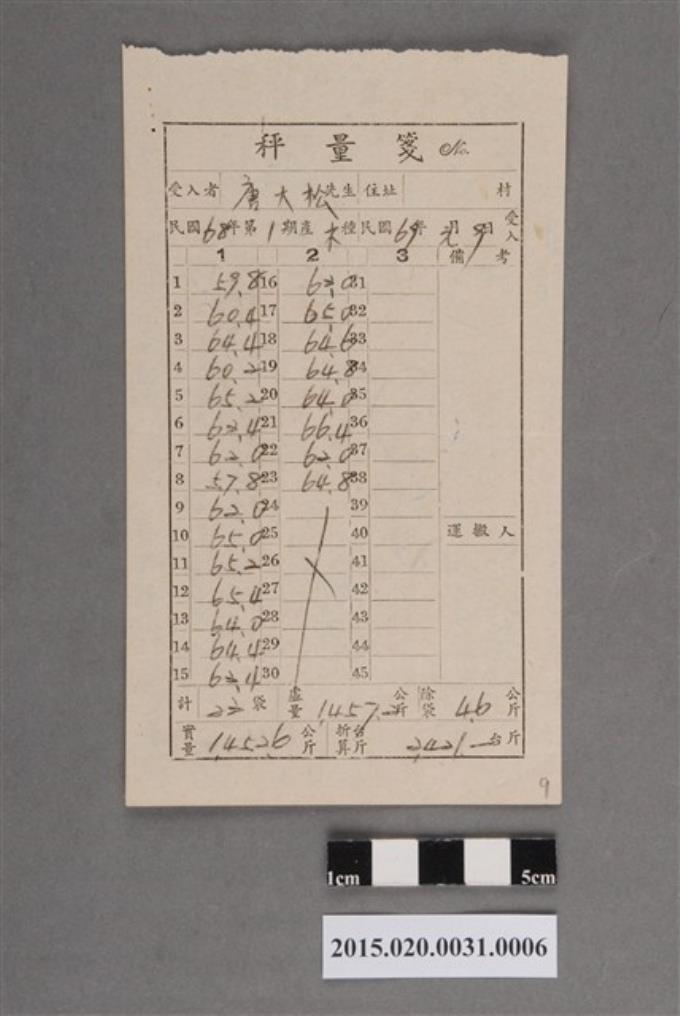 秤量箋 No.
受入者 唐大松 先生 住址 村
民國68年第1期產 種 民國69年元月9日 受入
1 2 3 備考
1 59.8 16 62.0 31
2 60.4 17 65.0 32
3 64.4 18 64.6 33
4 60.2 19 64.8 34
5 65.2 20 64.0 35
6 62.4 21 66.4 36
7 62.0 22 62.0 37
8 57.8 23 64.8 38
9 62.0 24 39
10 65.0 25 40 運搬人
11 65.2 26 41
12 65.4 27 42
13 64.0 28 43
14 64.4 29 44
15 62.4 30 45
計 袋 虛量 1,457.2 公斤 除袋 4.6 公斤
實量 1,452.6 公斤 折台算斤 2,421 台斤
9
1cm 5cm
2015.020.0031.0006